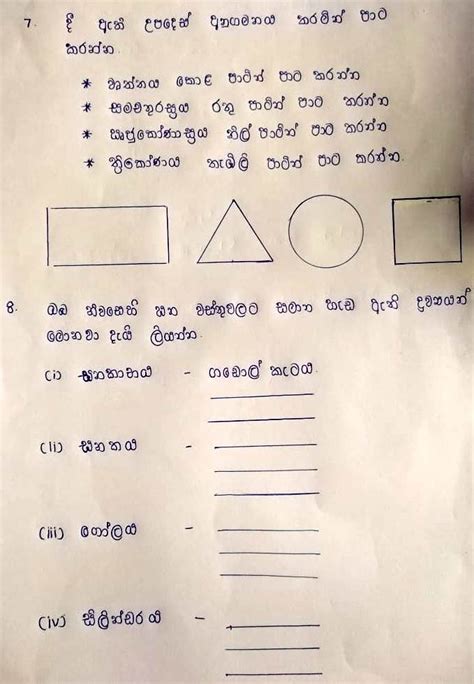 7. දී ඇති උපදෙස් අනුගමනය කරමින් පාට
කරන්න.
* වෘත්තය කොළ පාටින් පාට කරන්න
* සමචතුරස්‍රය රතු පාටින් පාට කරන්න
* ඍජුකෝණාස්‍රය නිල් පාටින් පාට කරන්න
* ත්‍රිකෝණය තැඹිලි පාටින් පාට කරන්න.
8. ඔබ නිවසෙහි ඝන වස්තුවලට සමාන හැඩ ඇති ද්‍රව්‍යයන්
මොනවා දැයි ලියන්න.
(i) ඝනකාභය - ගඩොල් කැටය.
(ii) ඝනකය -
(iii) ගෝලය -
(iv) සිලින්ඩරය -